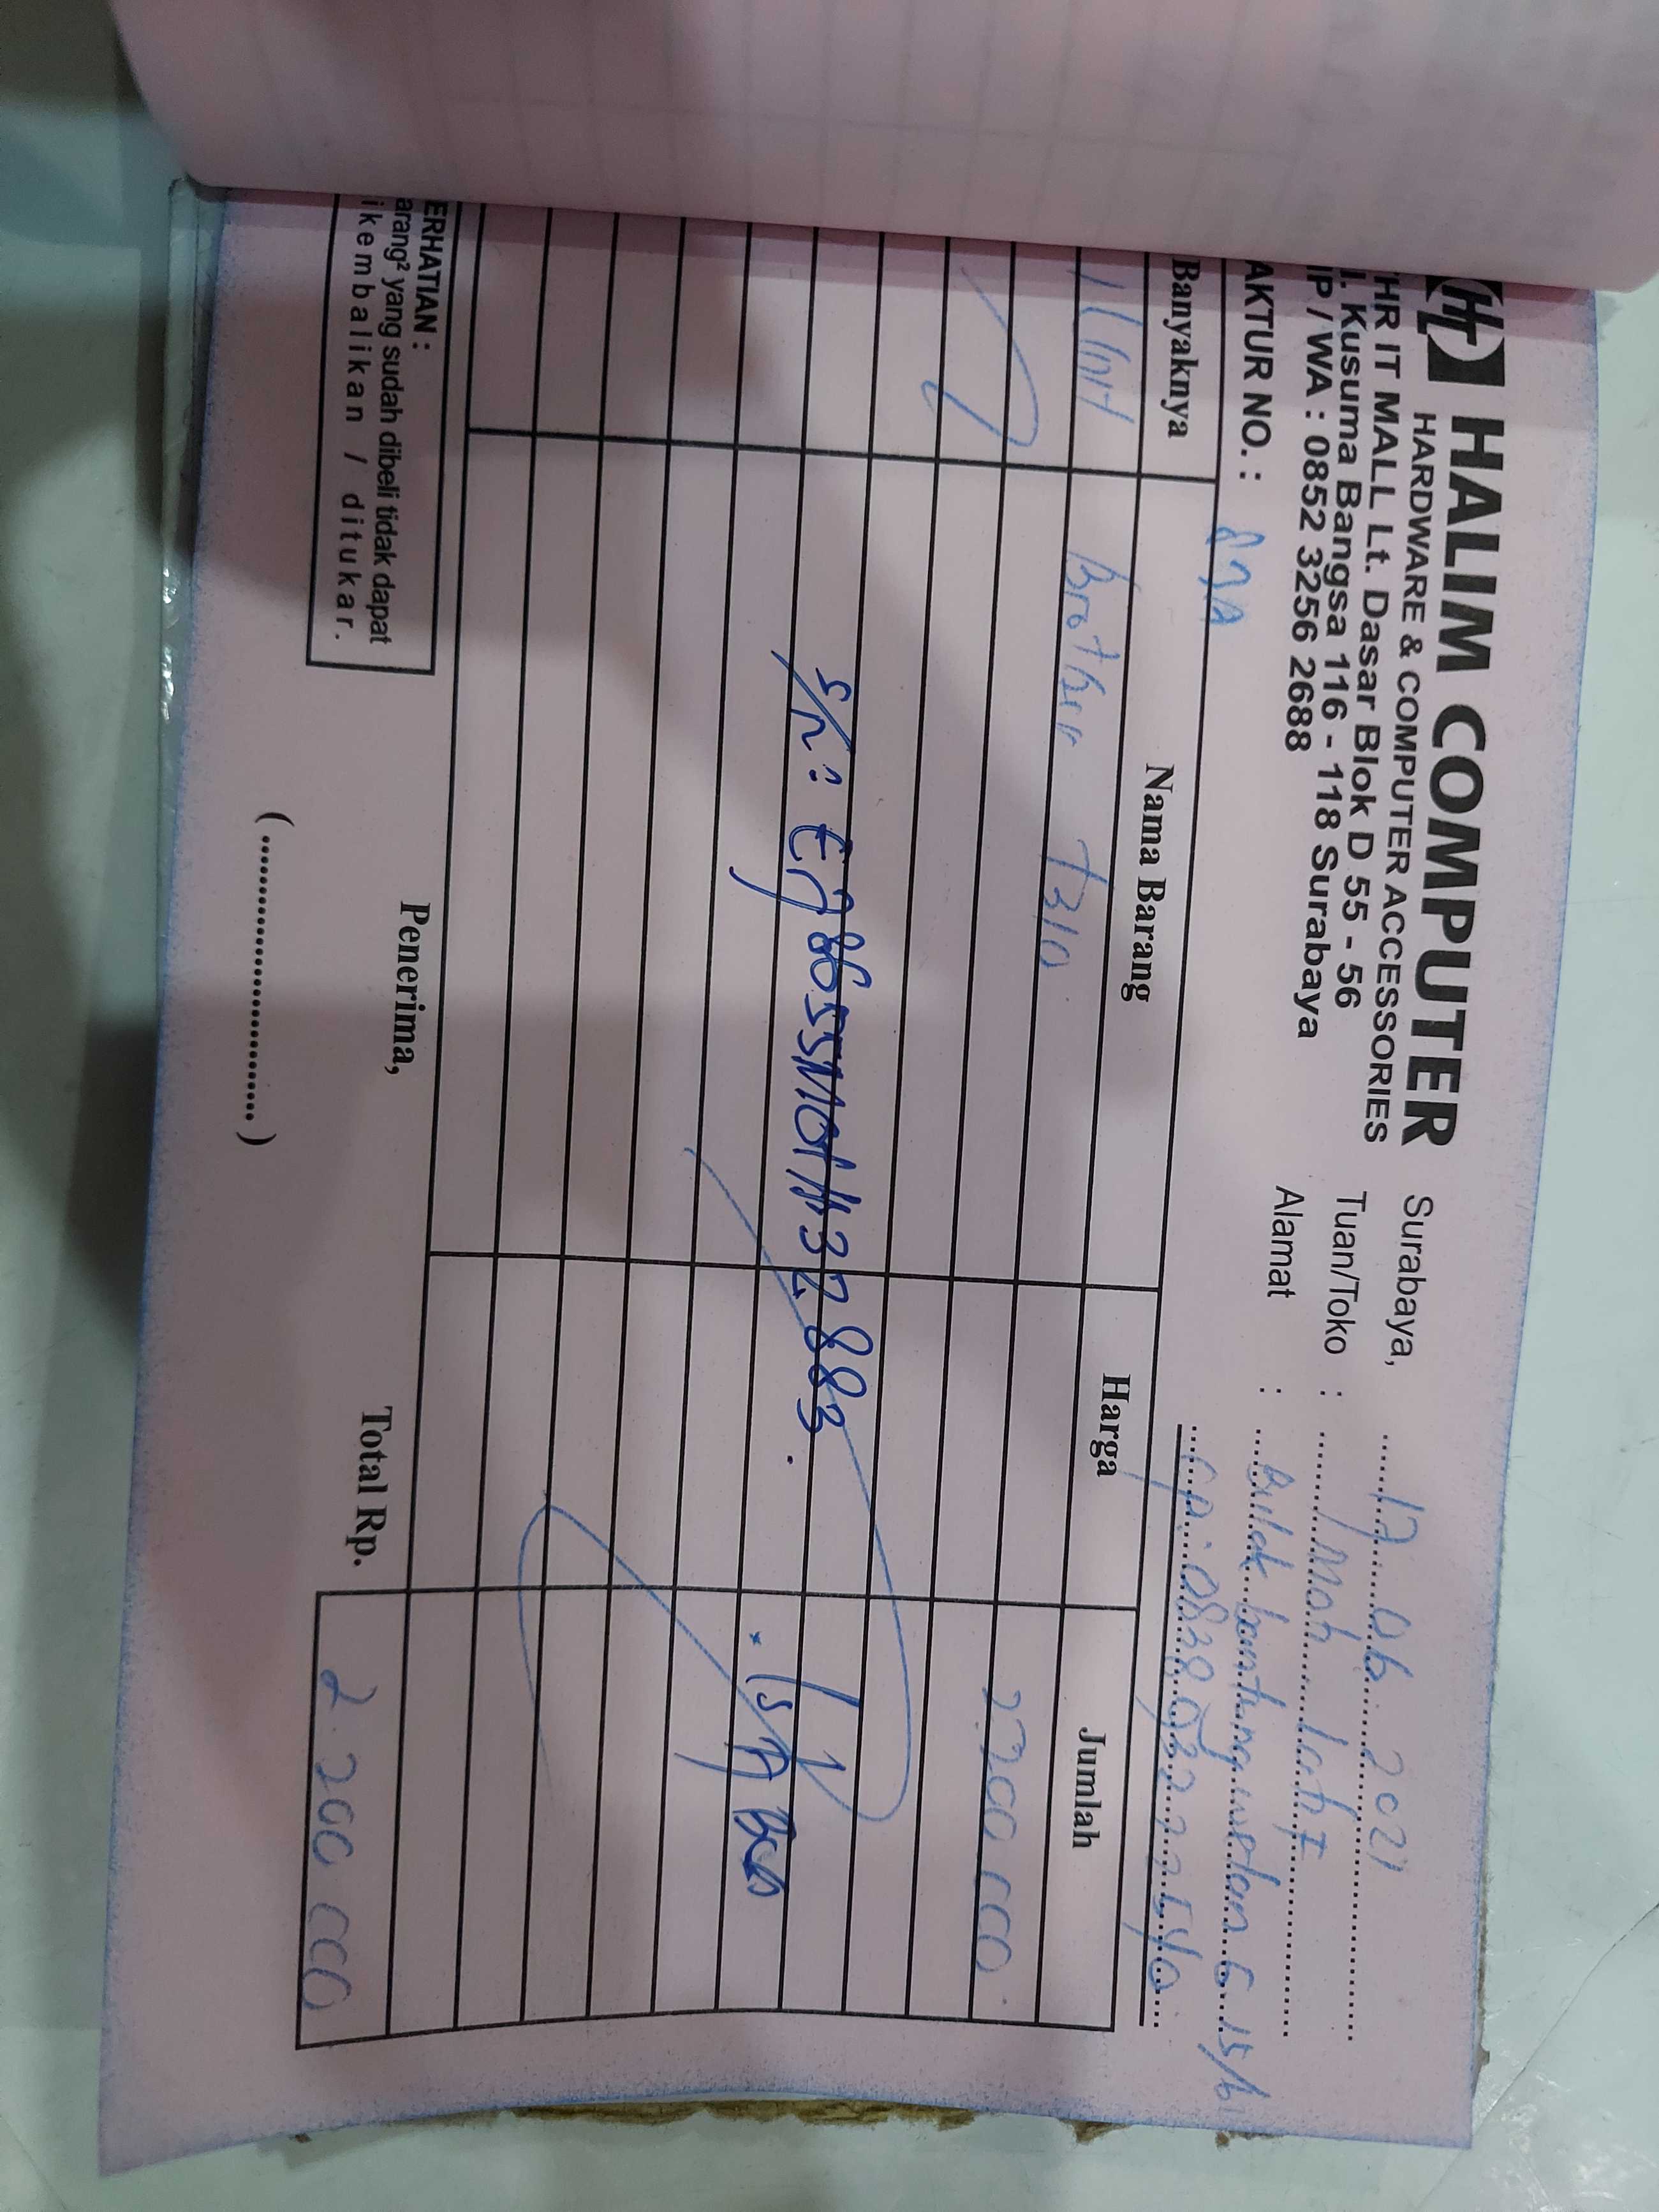 HALIM COMPUTER
HARDWARE & COMPUTER ACCESSORIES
THR IT MALL Lt. Dasar Blok D 55 - 56
Jl. Kusuma Bangsa 116 - 118 Surabaya
HP / WA : 0852 3256 2688
Surabaya, 17 06 2021
Tuan/Toko : Moh
Alamat : Bulak banteng wetan 6 15/
AKTUR NO. :
Banyaknya Nama Barang Harga Jumlah
1 Unit Brother T310 2200 000
S/N :
Total Rp. 2.200 000
ERHATIAN :
arang² yang sudah dibeli tidak dapat
ikembalikan / ditukar.
Penerima,
(........................)